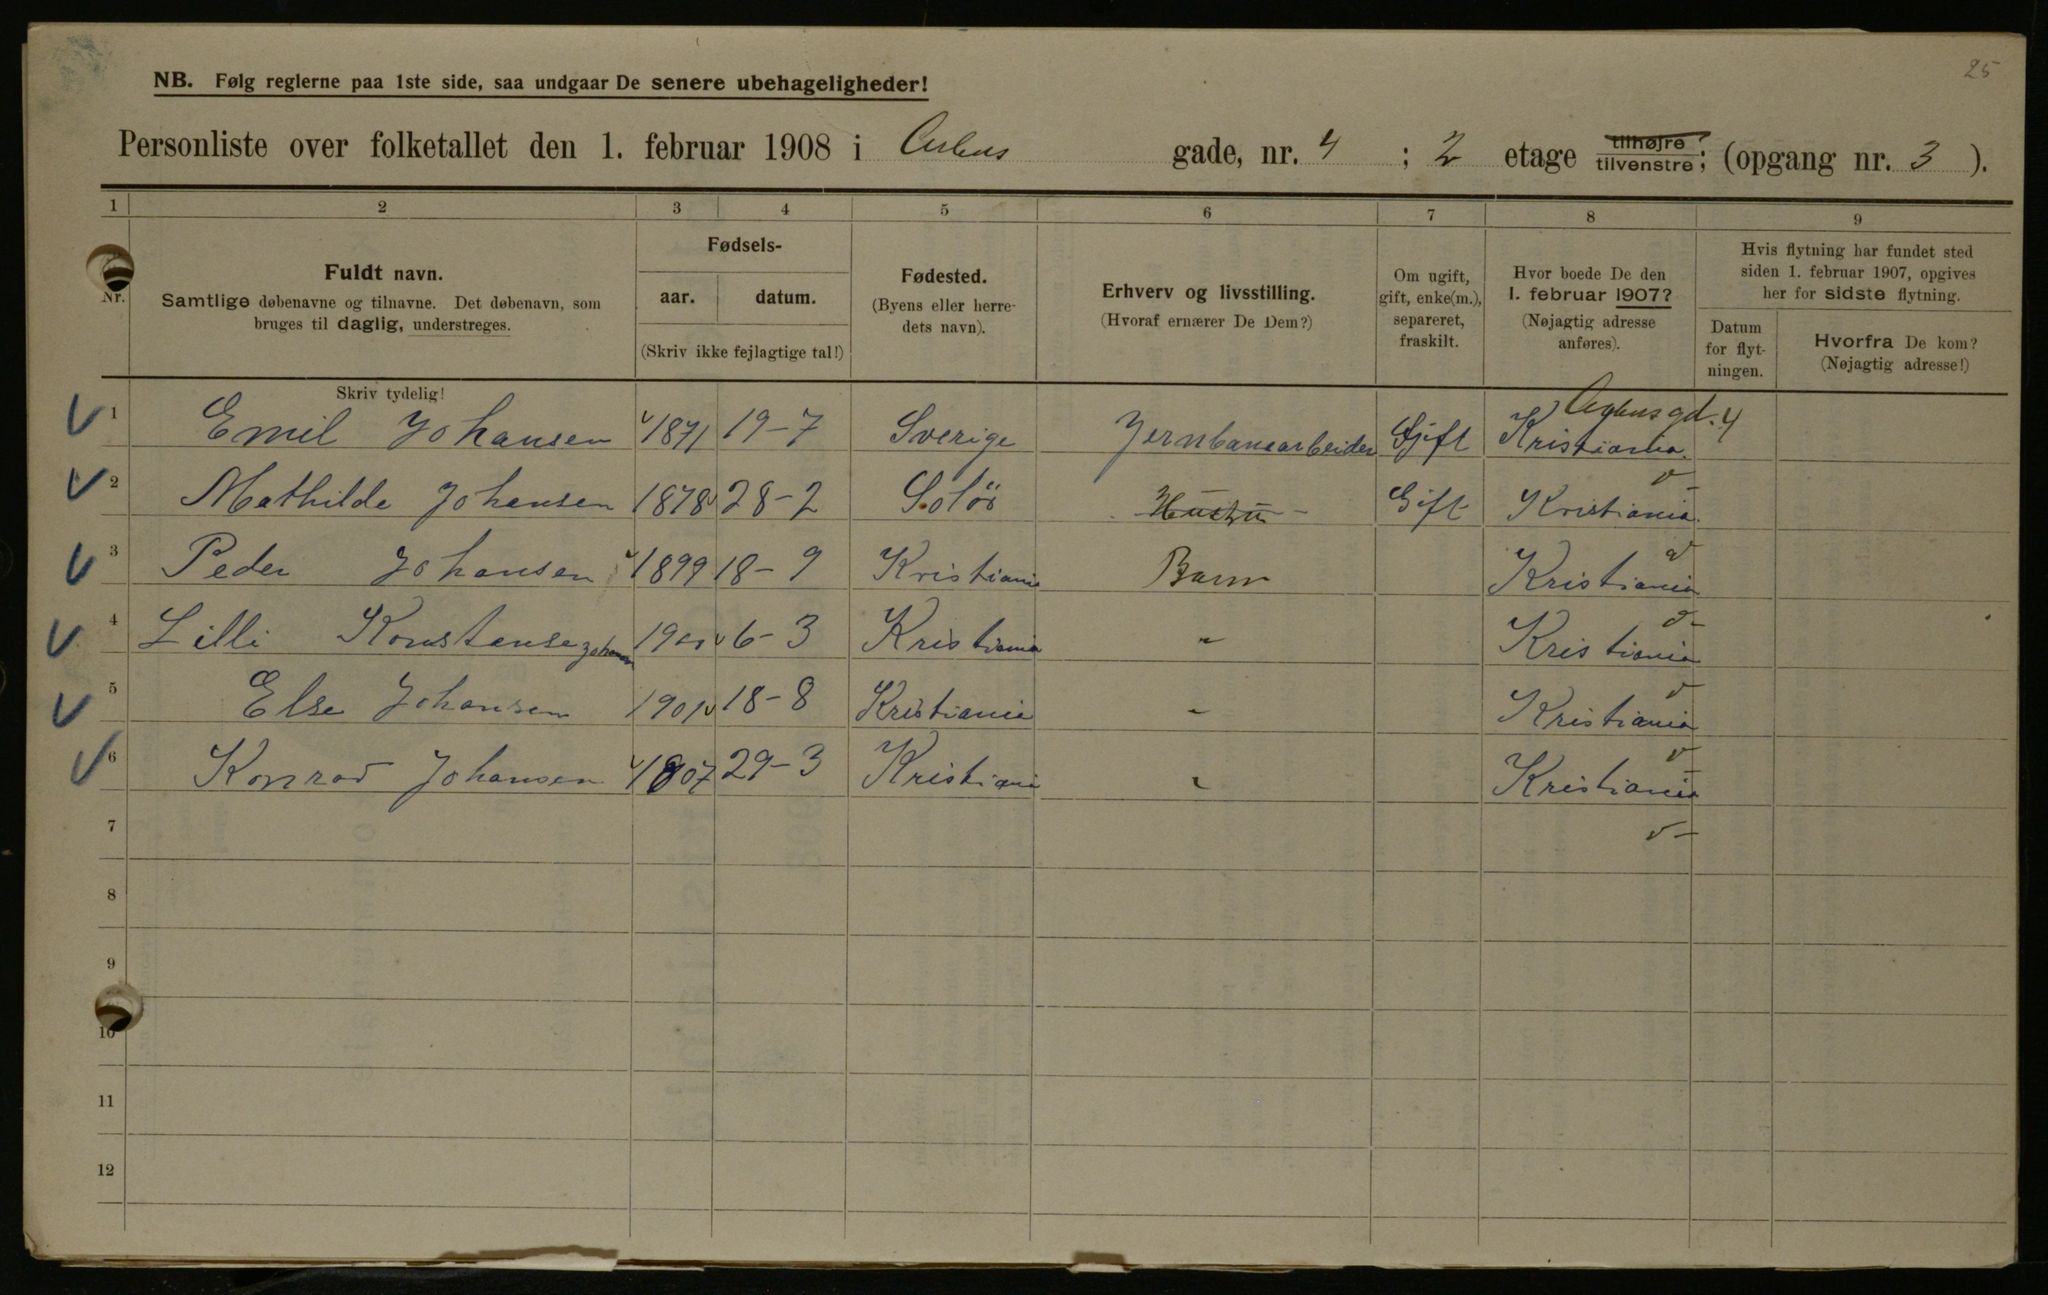 25
NB. Følg reglerne paa 1ste side, saa undgaar De senere ubehageligheder!
Personliste over folketallet den 1. februar 1908 i gade, nr. 4 ; 2 etage tilhøjre tilvenstre; (opgang nr. 3 ).
1 2 3 4 5 6 7 8 9
Nr.
Fuldt navn.
Samtlige døbenavne og tilnavne. Det døbenavn, som
bruges til daglig, understreges.
Skriv tydelig!
Fødsels-
aar. datum.
(Skriv ikke fejlagtige tal!)
Fødested.
(Byens eller herre-
dets navn).
Erhverv og livsstilling.
(Hvoraf ernærer De Dem?)
Om ugift,
gift, enke(m.),
separeret,
fraskilt.
Hvor boede De den
1. februar 1907?
(Nøjagtig adresse
anføres).
Hvis flytning har fundet sted
siden 1. februar 1907, opgives
her for sidste flytning.
Datum
for flyt-
ningen.
Hvorfra De kom?
(Nøjagtig adresse!)
1 Emil Johansen 1871 19-7 Sverige Jernbanearbeider Gift Kristiania. 4
2 Mathilde Johansen 1878 28-2 Solör Gift Kristiania.
3 Peder Johansen 1899 18-9 Kristiania Barn Kristiania
4 Lilli Konstanse Johansen 6-3 Kristiania " Kristiania
5 Else Johansen 1901 18-8 Kristiania " Kristiania
6 Konrad Johansen 1907 29-3 Kristiania " Kristiania
7
8
9
10
11
12